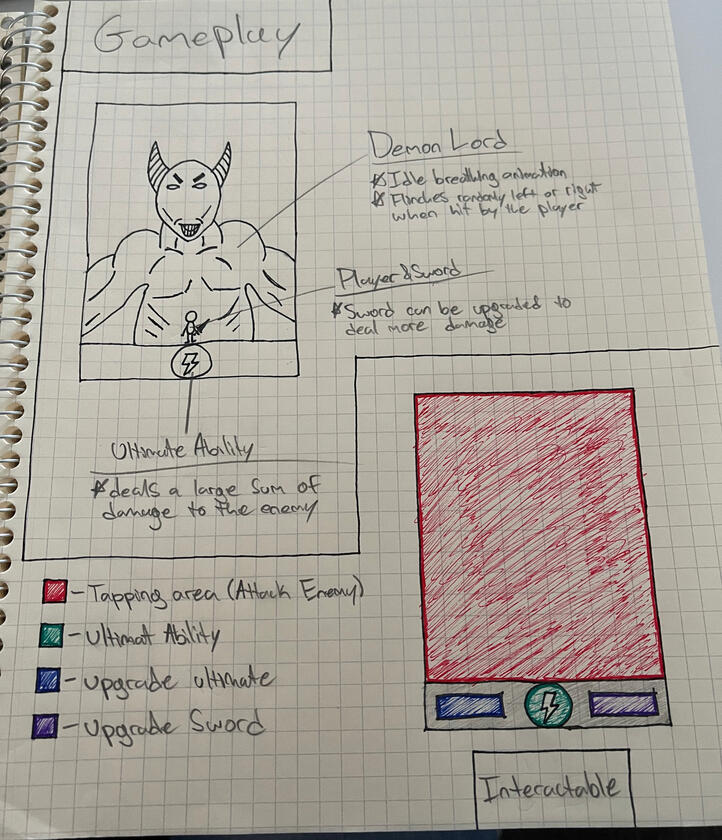 Gameplay
Demon Lord
* Idle breathing animation
* Flinches randomly left or right
when hit by the player
Player & Sword
* Sword can be upgraded to
deal more damage
Ultimate Ability
* deals a large sum of
damage to the enemy
- Tapping area (Attack Enemy)
- Ultimat Ability
- Upgrade ultimate
- Upgrade Sword
Interactable